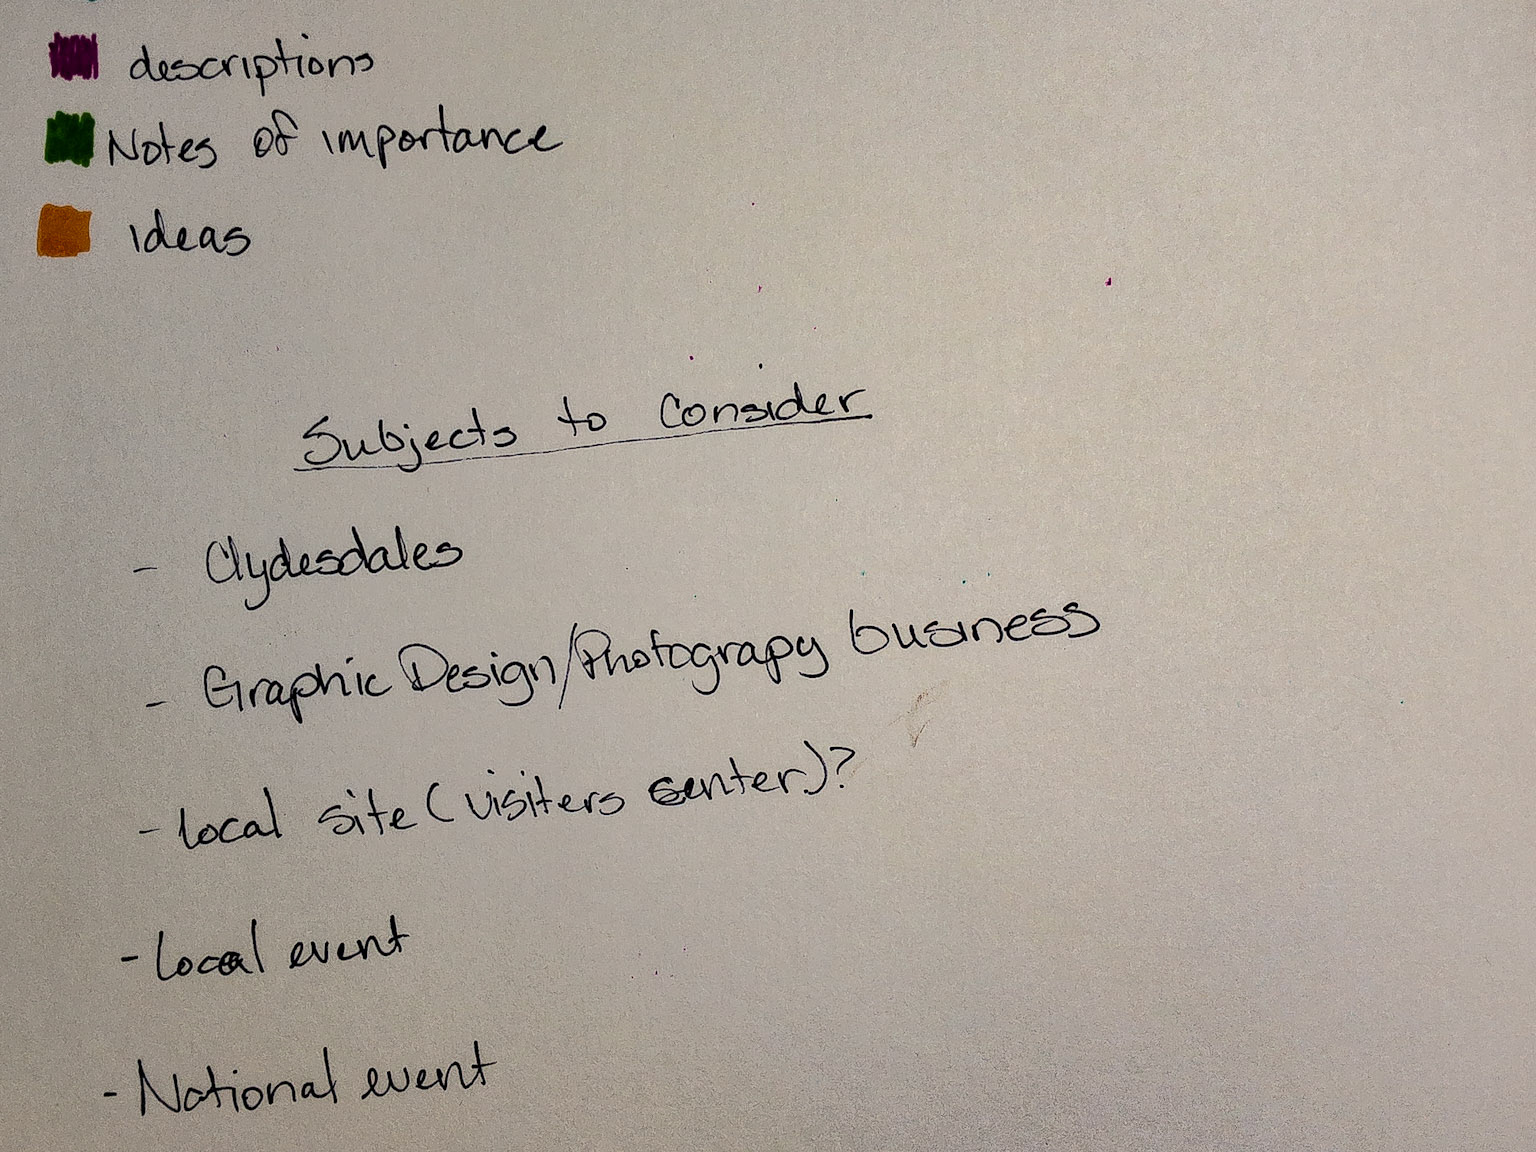 descriptions
Notes of importance
ideas
Subjects to Consider
- Clydesdales
- Graphic Design/Photograpy business
- local site (visiters senter)?
- Local event
- National event